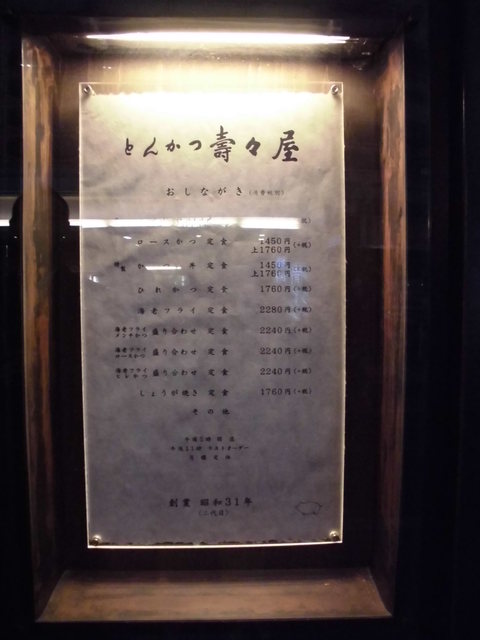 とんかつ壽々屋
おしながき(消費税別)
税)
ロースかつ定食 1450円(+税)
上1760円
特製 か 丼 定食 1450円(+税)
上1760円
ひれかつ定食 1760円(+税)
海老フライ定食 2280円(+税)
海老フライ メンチかつ 盛り合わせ 定食 2240円(+税)
海老フライ ロースかつ 盛り合わせ 定食 2240円(+税)
海老フライ ヒレかつ 盛り合わせ 定食 2240円(+税)
しょうが焼き定食 1760円(+税)
その他
午後5時 開店
午後11時 ラストオーダー
月曜定休
創業 昭和31年
(二代目)